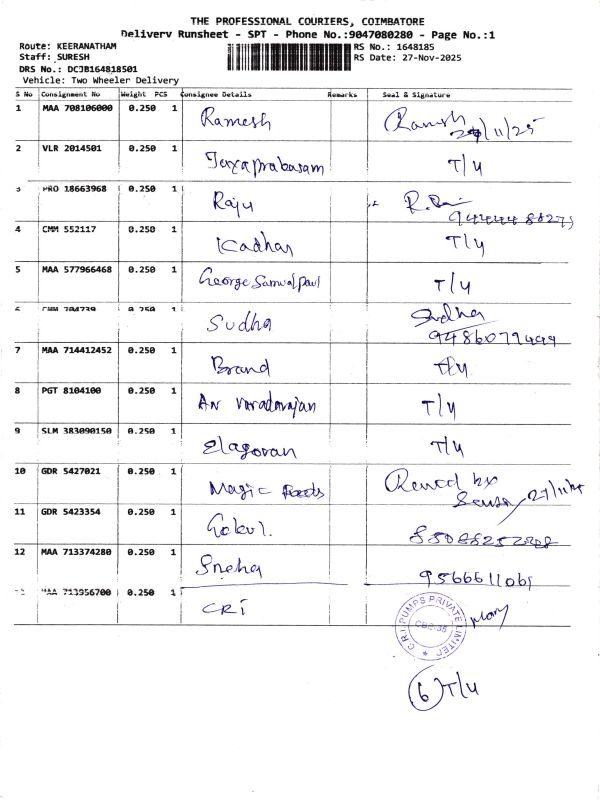 THE PROFESSIONAL COURIERS, COIMBATORE
Delivery Runsheet - SPT - Phone No.:9047080280 - Page No.:1
Route: KEERANATHAM RS No.: 1648185
Staff: SURESH RS Date: 27-Nov-2025
DRS No.: DCJB164818501
Vehicle: Two Wheeler Delivery
S No Consignment No Weight PCS Consignee Details Remarks Seal & Signature
1 MAA 708106000 0.250 1 Ramesh Ramesh 27/11/25
2 VLR 2014501 0.250 1 Jayaprabasam T/4
3 PRO 18663968 0.250 1 Raju R.
4 CMM 552117 0.250 1 Kadhar T/4
5 MAA 577966468 0.250 1 George Samuel Paul T/4
6 CMM 204739 0.250 1 Sudha Sudha
9486079499
7 MAA 714412452 0.250 1 Brand T/4
8 PGT 8104100 0.250 1 AN Varadarajan T/4
9 SLM 383090150 0.250 1 Elagovan T/4
10 GDR 5427021 0.250 1 Magic 27/11/25
11 GDR 5423354 0.250 1 Gokul.
12 MAA 713374280 0.250 1 Sneha 9566611061
13 MAA 713956700 0.250 1 CRI
C.R.I. PUMPS PRIVATE LIMITED
CBE-35
6 T/4